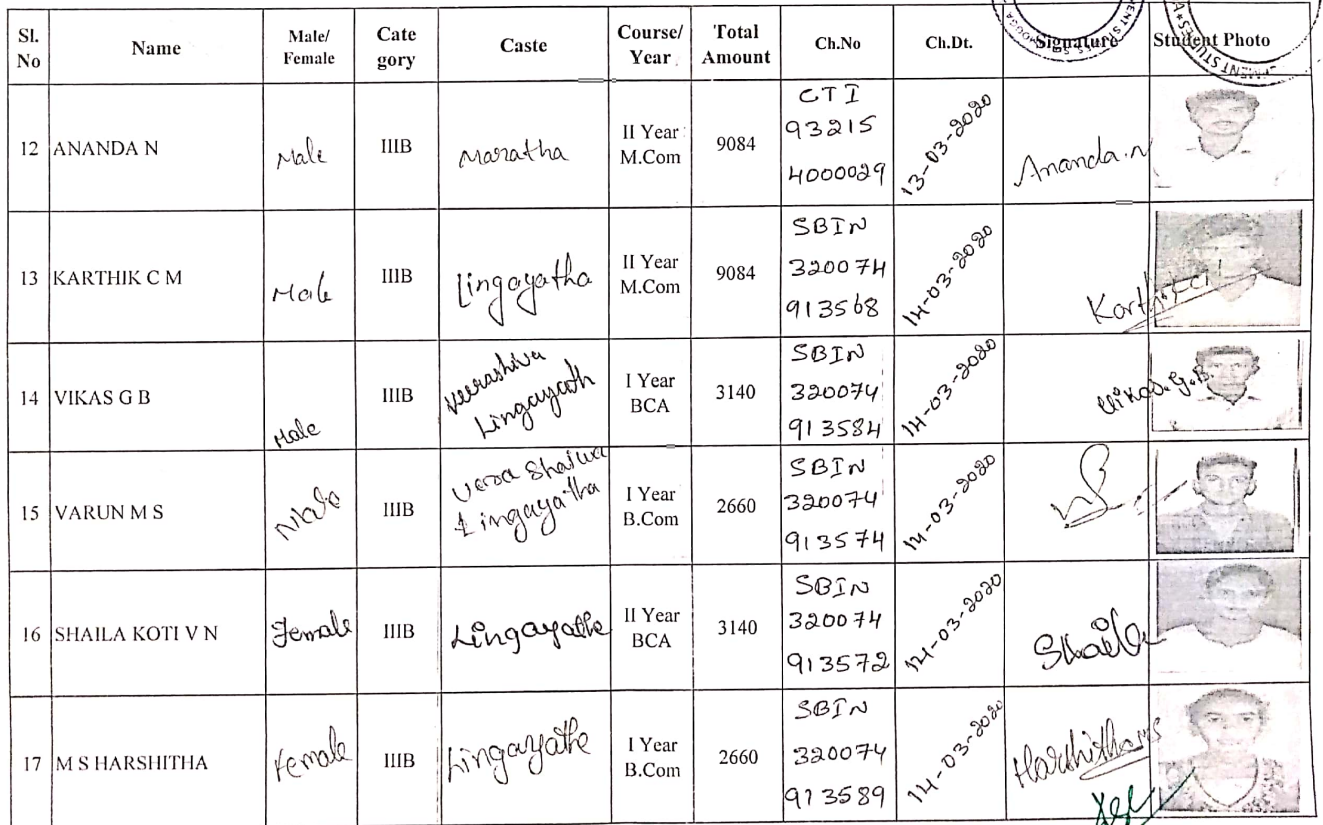 Sl. No Name Male/ Female Cate gory Caste Course/ Year Total Amount Ch.No Ch.Dt. Signature Student Photo
12 ANANDA N Male IIIB Maratha II Year M.Com 9084 CTI 93215 4000029 13-03-2020 Ananda.N
13 KARTHIK C M Male IIIB Lingayatha II Year M.Com 9084 SBIN 320074 913568 14-03-2020
14 VIKAS G B Male IIIB Veerashiva Lingayath I Year BCA 3140 SBIN 320074 913584 14-03-2020 Vikas.G.B.
15 VARUN M S Male IIIB Veera Shaiva Lingayatha I Year B.Com 2660 SBIN 320074 913574 14-03-2020
16 SHAILA KOTI V N Female IIIB Lingayathe II Year BCA 3140 SBIN 320074 913572 14-03-2020 Shaila
17 M S HARSHITHA Female IIIB Lingayathe I Year B.Com 2660 SBIN 320074 913589 14-03-2020 Harshitha M S